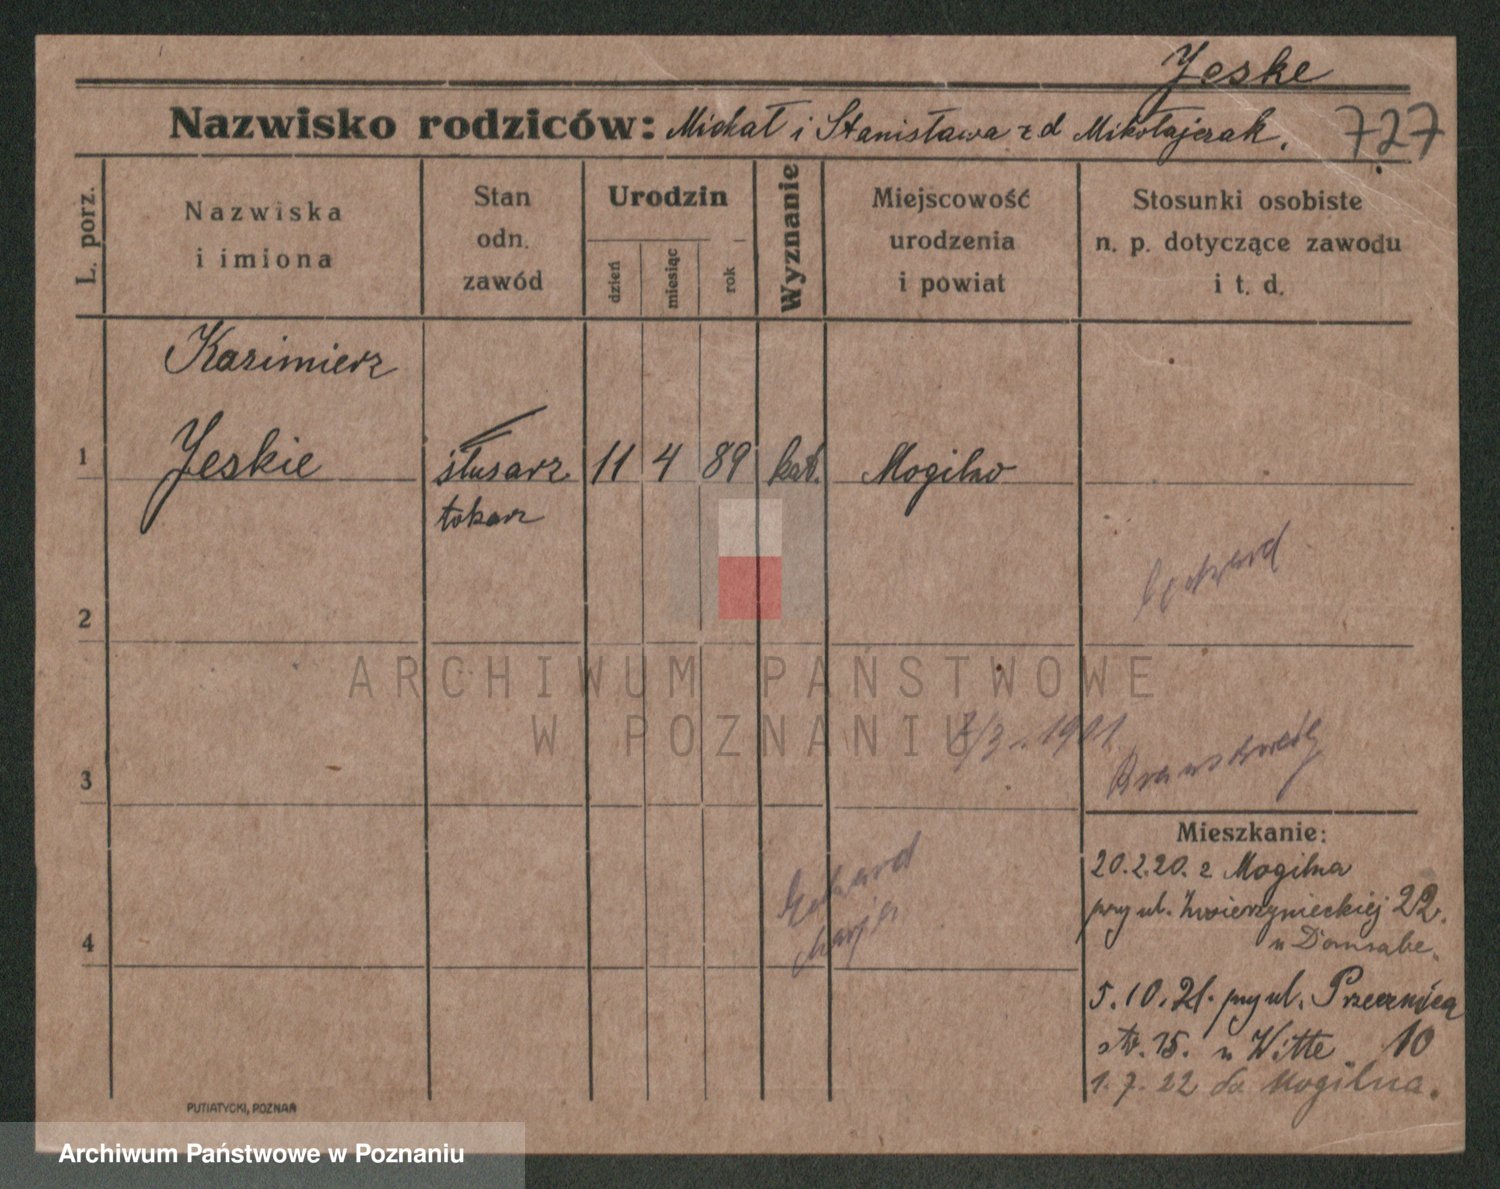 Jeske
Nazwisko rodziców: Michał i Stanisława z d Mikołajczak. 727
L. porz.
Nazwiska
i imiona
Stan
odn.
zawód
Urodzin
dzień
miesiąc
rok
Wyznanie
Miejscowość
urodzenia
i powiat
Stosunki osobiste
n. p. dotyczące zawodu
i t. d.
Kazimierz
1 Jeskie ślusarz 11 4 89 kat. Mogilno
tokarz
2
3
4
8/3.1901
Mieszkanie:
20.2.20. z Mogilna
przy ul. Zwierzynieckiej 22.
u
5.10.21. przy ul. Przecznica
str. 15. u Witte 10
1.7.22 do Mogilna.
PUTIATYCKI, POZNAŃ
ARCHIWUM PAŃSTWOWE
W POZNANIU
Archiwum Państwowe w Poznaniu